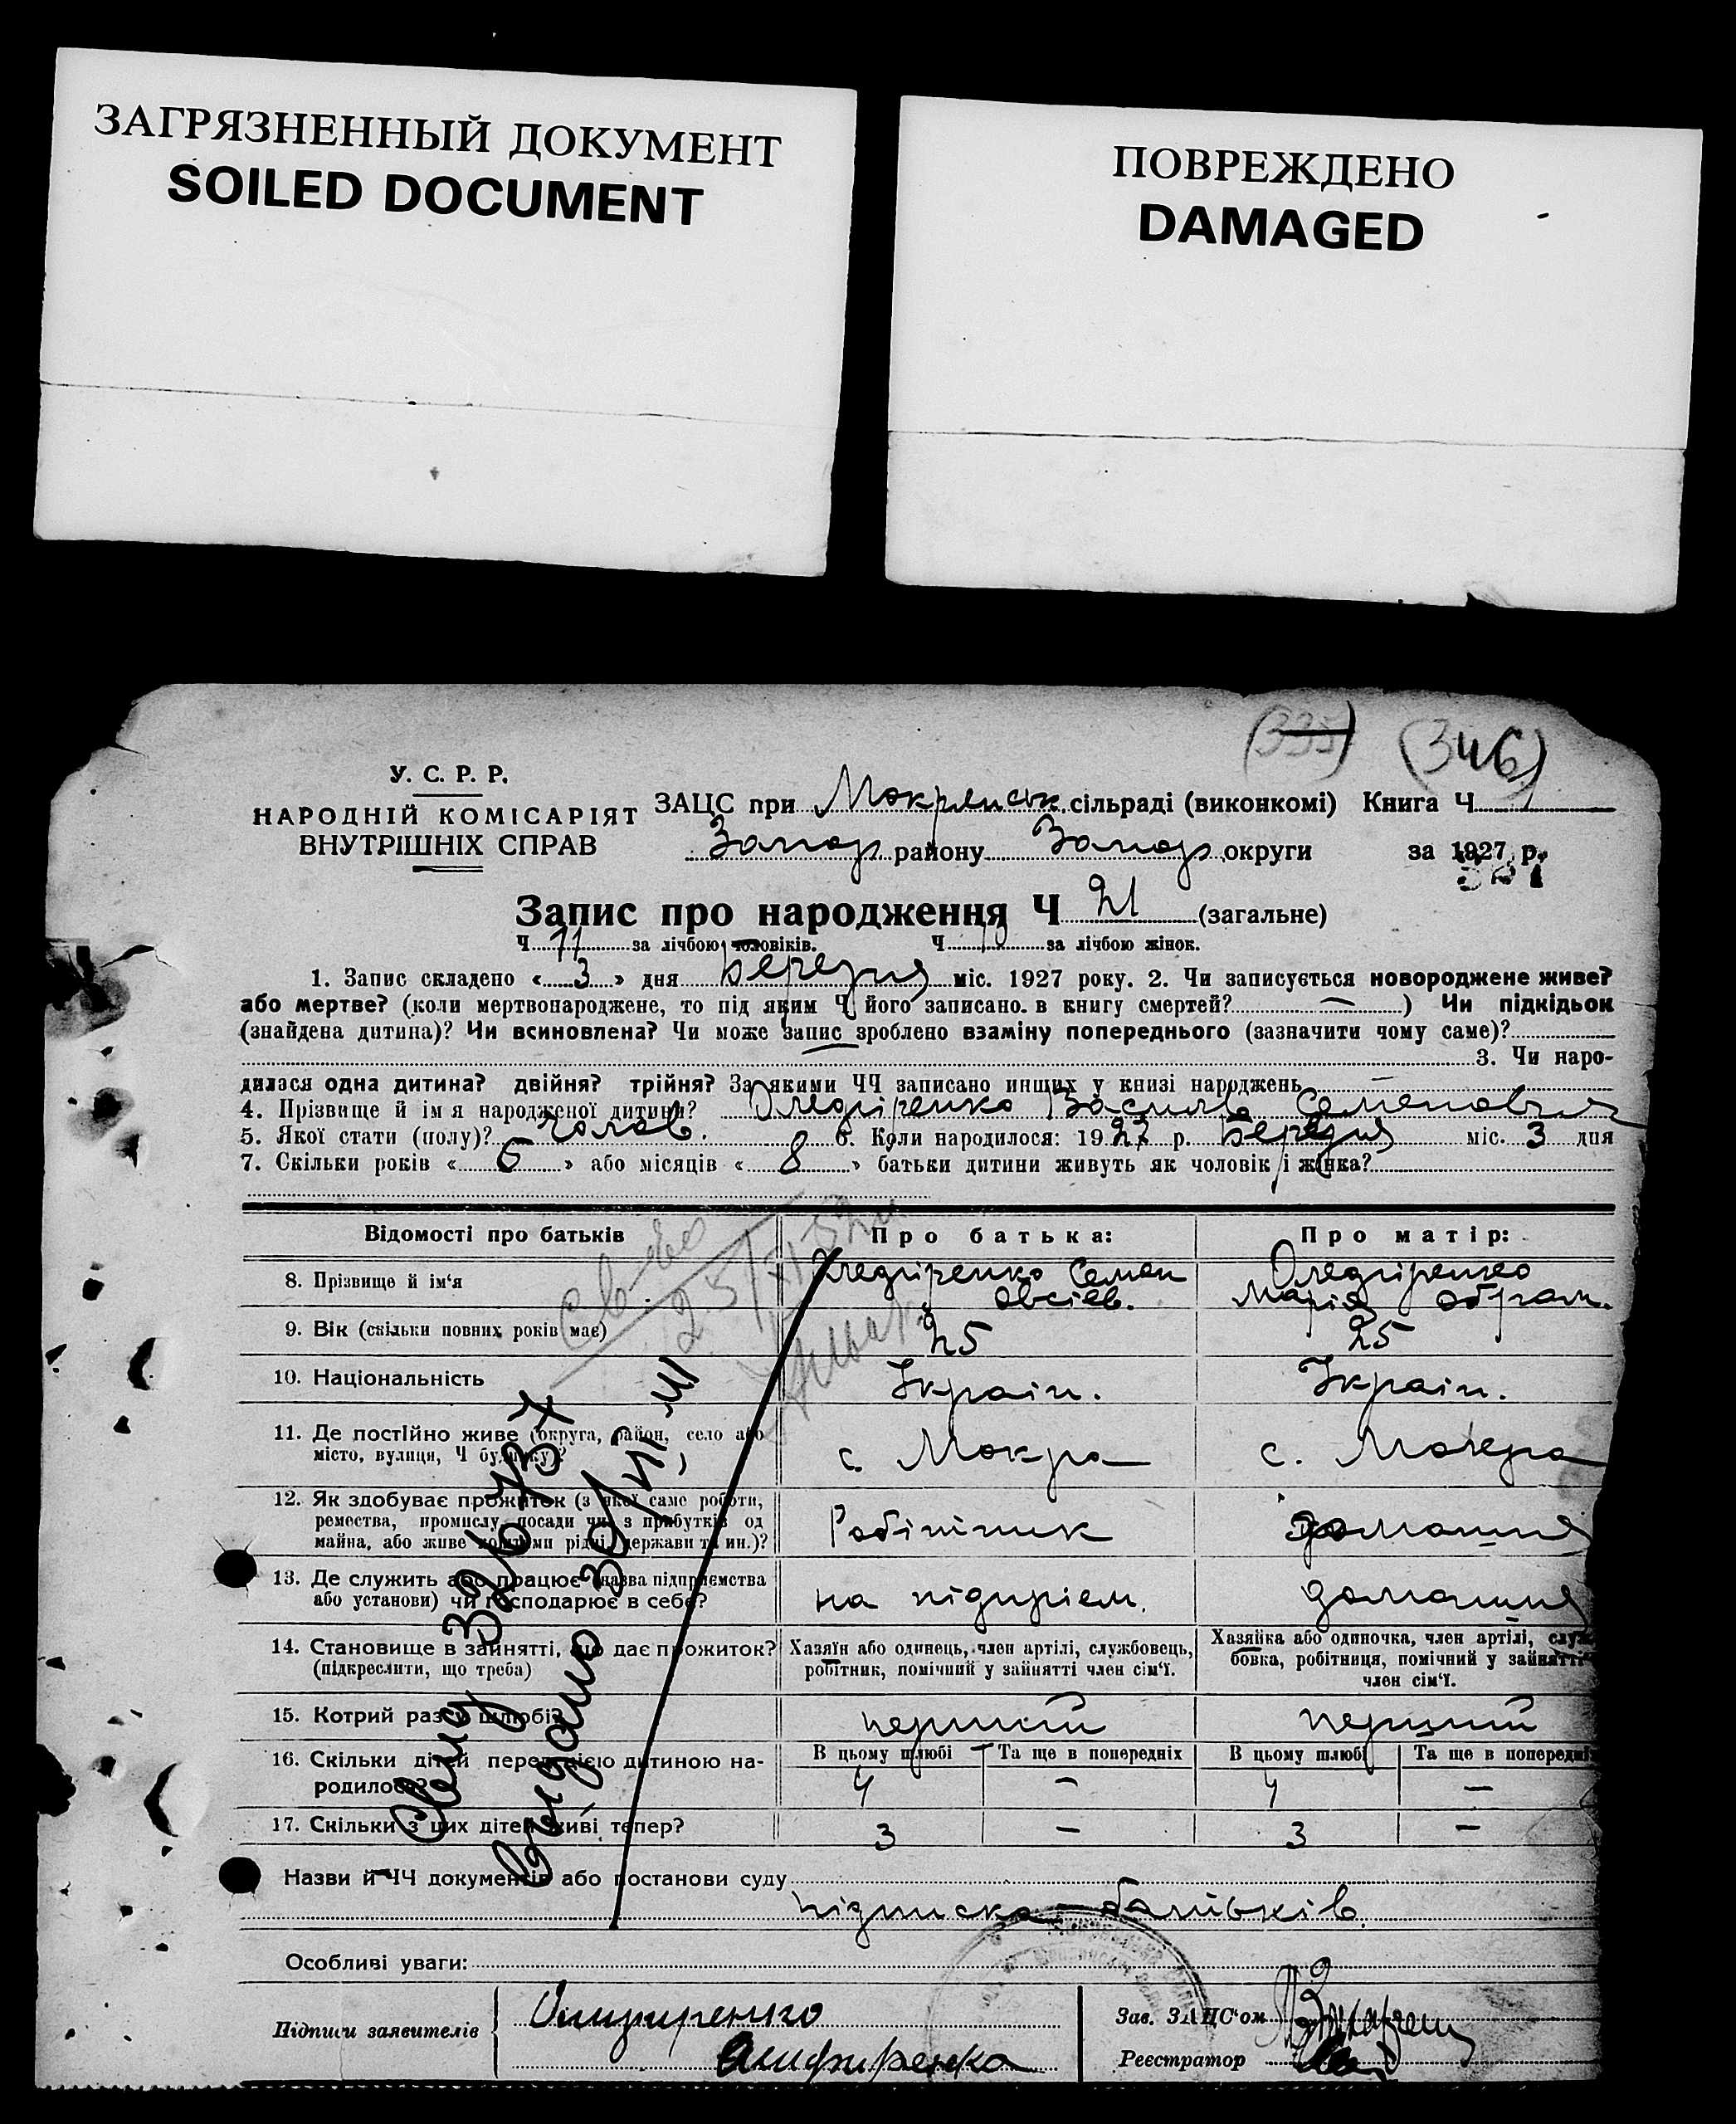 ЗАГРЯЗНЕННЫЙ ДОКУМЕНТ
SOILED DOCUMENT
ПОВРЕЖДЕНО
DAMAGED
(335) (346)
У. С. Р. Р.
НАРОДНІЙ КОМІСАРІЯТ
ВНУТРІШНІХ СПРАВ
ЗАЦС при Мокрянськ сільраді (виконкомі) Книга Ч. 1
Запор району Запор округи за 1927 р.
Запис про народження Ч 21 (загальне)
Ч 11 за лічбою чоловіків. Ч 10 за лічбою жінок.
1. Запис складено « 3 » дня Березня міс. 1927 року. 2. Чи записується новороджене живе?
або мертве? (коли мертвонароджене, то під яким Ч його записано в книгу смертей? — ) Чи підкідьок
(знайдена дитина)? Чи всиновлена? Чи може запис зроблено взаміну попереднього (зазначити чому саме)?
— 3. Чи наро-
дилася одна дитина? двійня? трійня? За якими ЧЧ записано инших у книзі народжень —
4. Прізвище й ім'я народженої дитини? Василь Семенович
5. Якої стати (полу)? чолов. 6. Коли народилося: 1927 р. Березня міс. 3 дня
7. Скільки років « 6 » або місяців « 8 » батьки дитини живуть як чоловік і жінка?
Відомості про батьків Про батька: Про матір:
8. Прізвище й ім'я Семен Овсіев. Марія Абрам.
9. Вік (скільки повних років має) 25 25
10. Національність Україн. Україн.
11. Де постійно живе (округа, район, село або
місто, вулиця, Ч будинку)? с. Мокра с. Мокра
12. Як здобуває прожиток (з якої саме роботи,
ремества, промислу, посади чи з прибутків од
майна, або живе коштами рідні, держави та ин.)? Робітник домашня
13. Де служить або працює (назва підприємства
або установи) чи господарює в себе? на підприєм. домашня
14. Становище в зайнятті, що дає прожиток?
(підкреслити, що треба)
Хазяїн або одинець, член артілі, службовець,
робітник, помічний у зайнятті член сім'ї.
Хазяйка або одиночка, член артілі, служ
бовка, робітниця, помічний у зайнятті
член сім'ї.
15. Котрий раз у шлюбі? перший перший
16. Скільки дітей перед цією дитиною на-
родилося?
В цьому шлюбі Та ще в попередніх В цьому шлюбі Та ще в попередніх
4 — 4 —
17. Скільки з цих дітей живі тепер? 3 — 3 —
Назви й ЧЧ документів або постанови суду
підписка батьків.
Особливі уваги:
Підписи заявителів
Зав. ЗАЦС'ом
Реєстратор